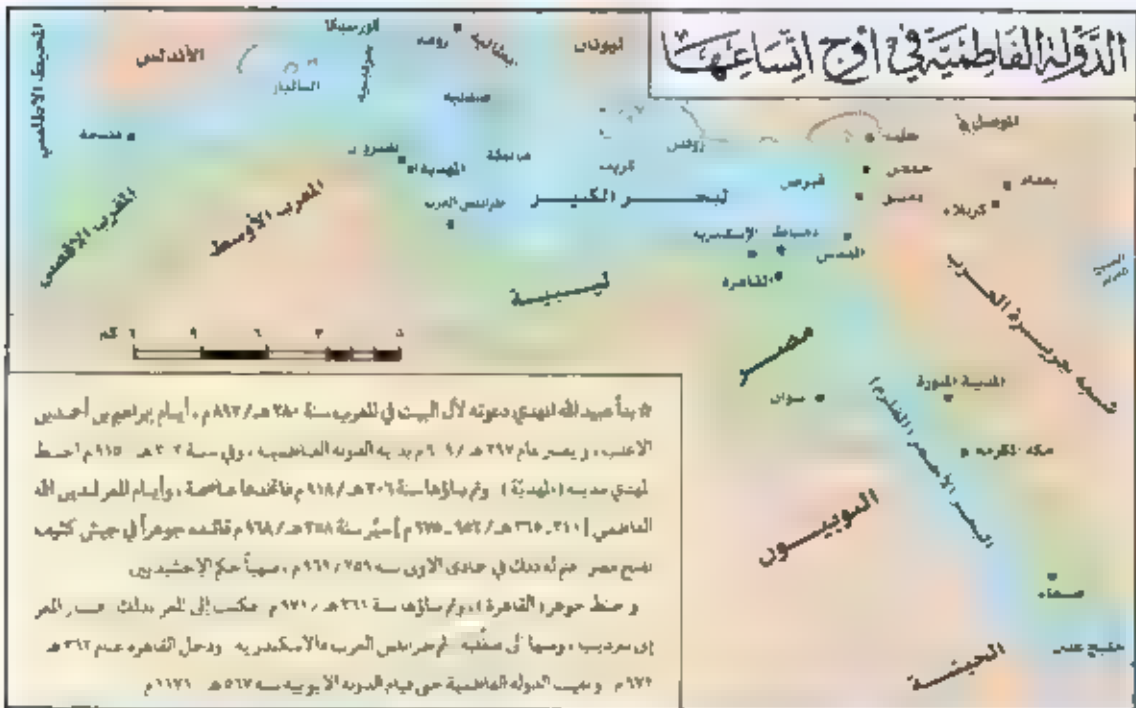 الدَّوْلَةُ الفَاطِمِيَّةُ فِي أوْجِ اتِّسَاعِهَا
المحيط الأطلسي
الأندلس
روما
صقلية
المهدية
مالطة
رودس
كريت
قبرص
الموصل
حلب
حمص
دمشق
بغداد
كربلاء
المغرب الأقصى
المغرب الأوسط
طرابلس الغرب
البحر الكبير
ليبية
الإسكندرية
دمياط
القدس
القاهرة
شبه جزيرة العرب
مصر
المدينة المنورة
مكة المكرمة
البحر الأحمر (القلزم)
النوبيون
صنعاء
خليج عدن
الحبشة
كم
بدأ عبيد الله المهدي دعوته لآل البيت في المغرب سنة ٢٨٠ هـ/٨٩٣ م، أيام إبراهيم بن أحمد بن
الأغلب، عام ٢٩٧ هـ/ م الدولة الفاطمية، وفي سنة ٣٠٣ هـ ٩١٥ م اختط
المهدي مدينة (المهدية) وتم بناؤها سنة ٣٠٦ هـ/٩١٨ م فاتخذها عاصمة، وأيام المعز لدين الله
الفاطمي [٣٤١ ـ ٣٦٥ هـ/٩٥٢ ـ ٩٧٥ م] سيَّر سنة ٣٥٨ هـ/٩٦٨ م قائده جوهراً في جيش كثيف
لفتح مصر فتم له ذلك في جمادى الأولى سنة ٣٥٩/٩٦٩ م، منهياً حكم الإخشيديين
واختط جوهر (القاهرة)، وتم بناؤها سنة ٣٦١ هـ/٩٧١ م فكتب إلى المعز بذلك المعز
إلى ، ومنها إلى ثم طرابلس الغرب فالإسكندرية ودخل القاهرة عام ٣٦٢ هـ
٩٧٢ م وبقيت الدولة الفاطمية حتى قيام الدولة الأيوبية سنة ٥٦٧ هـ ١١٧١ م